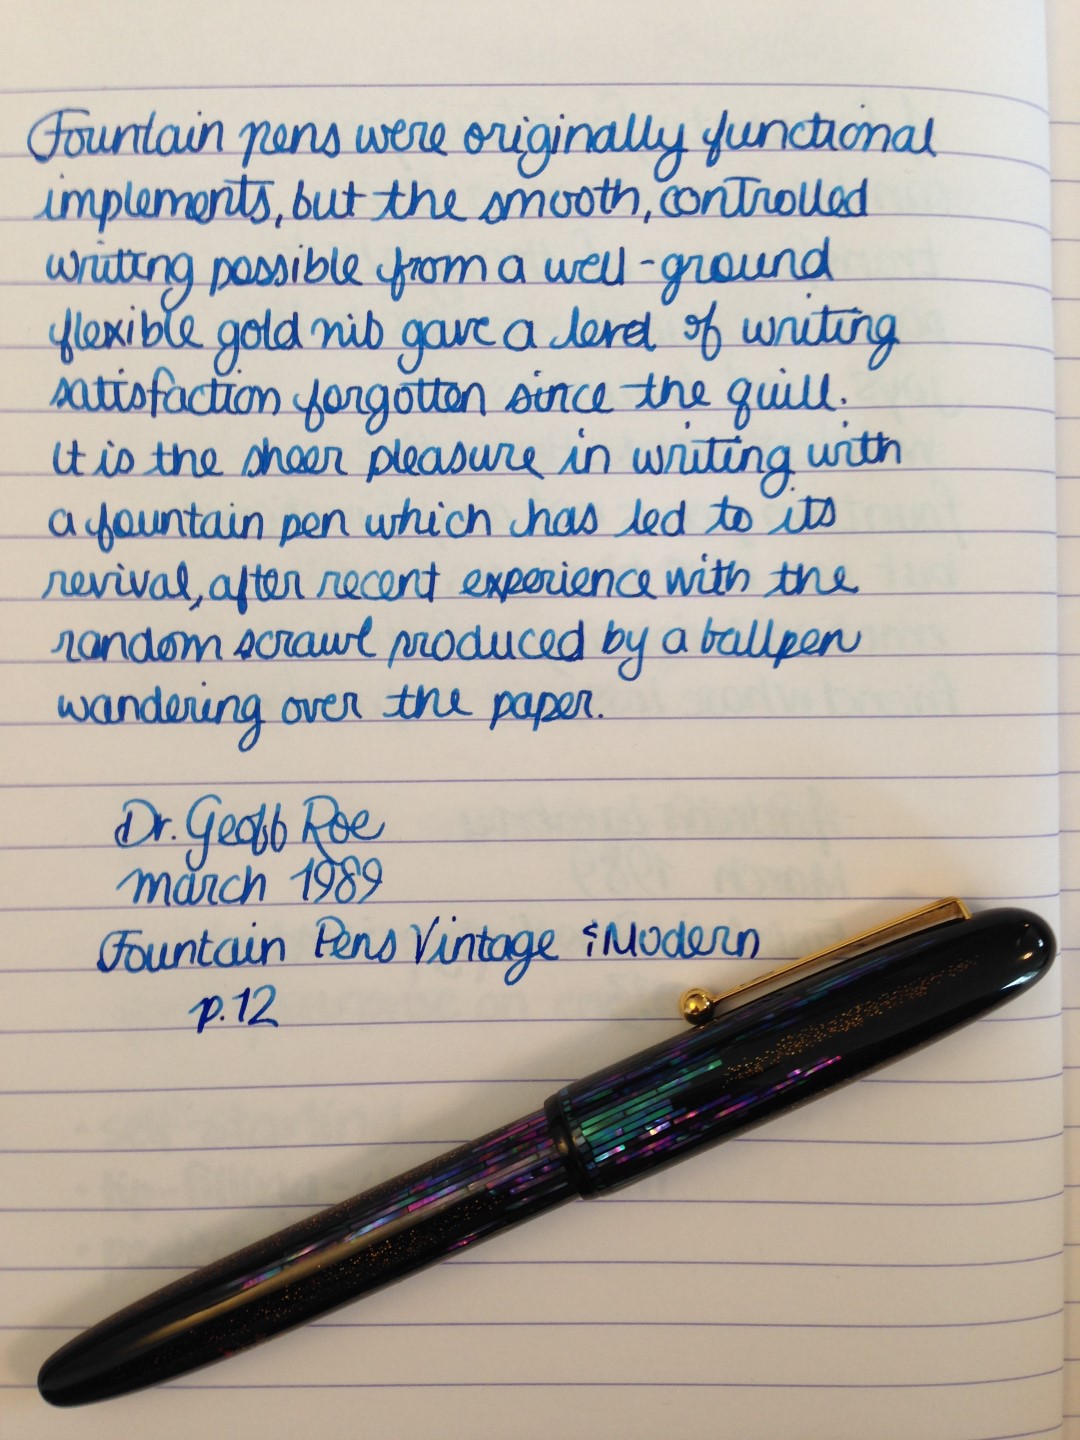 Fountain pens were originally functional
implements, but the smooth, controlled
writing possible from a well-ground
flexible gold nib gave a level of writing
satisfaction forgotten since the quill.
It is the sheer pleasure in writing with
a fountain pen which has led to its
revival, after recent experience with the
random scrawl produced by a ballpen
wandering over the paper.
Dr. Geoff Roe
march 1989
Fountain Pens Vintage & Modern
p.12